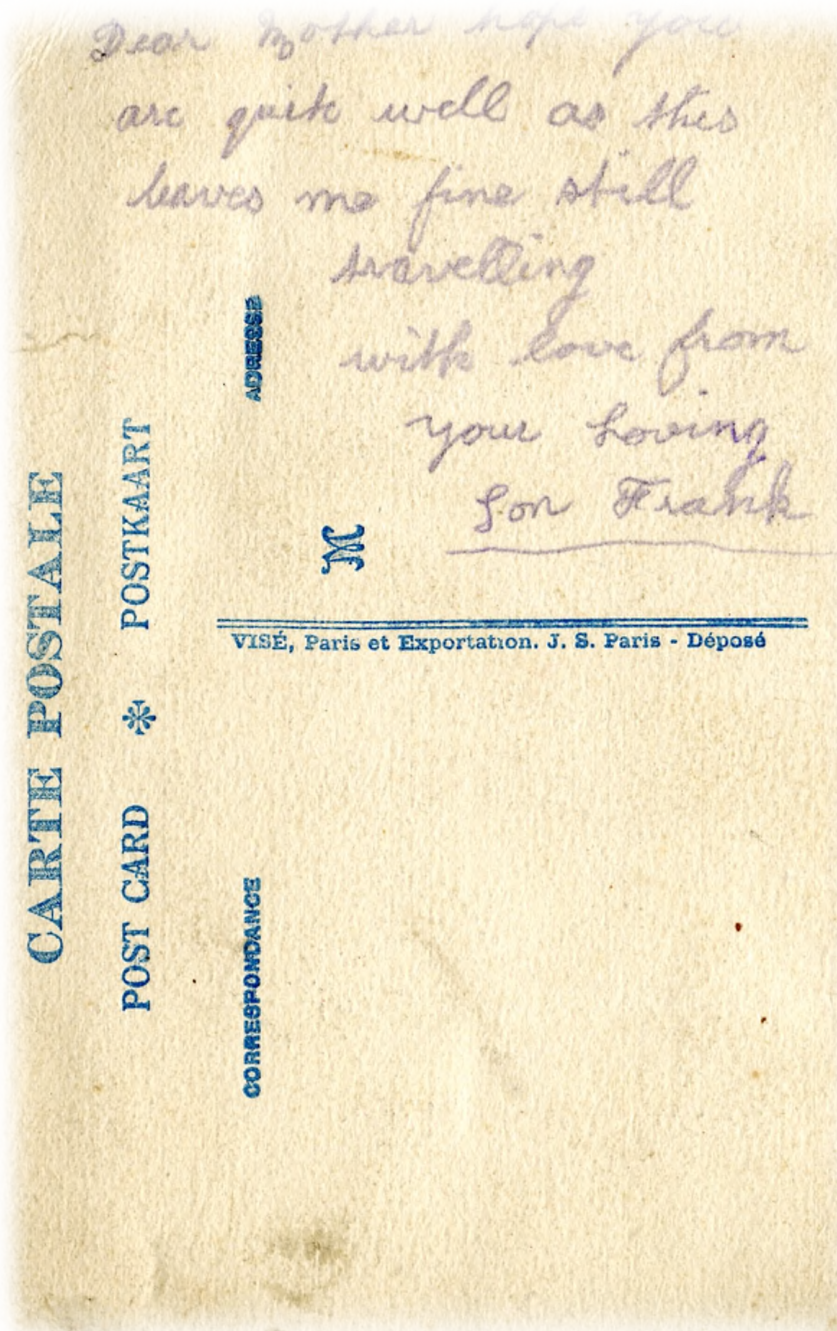 Dear Mother hope you
are quite well as this
leaves me fine still
travelling
with love from
your Loving
Son Frank
CARTE POSTALE
POST CARD * POSTKAART
CORRESPONDANCE
ADRESSE
M
VISÉ, Paris et Exportation. J. S. Paris - Déposé